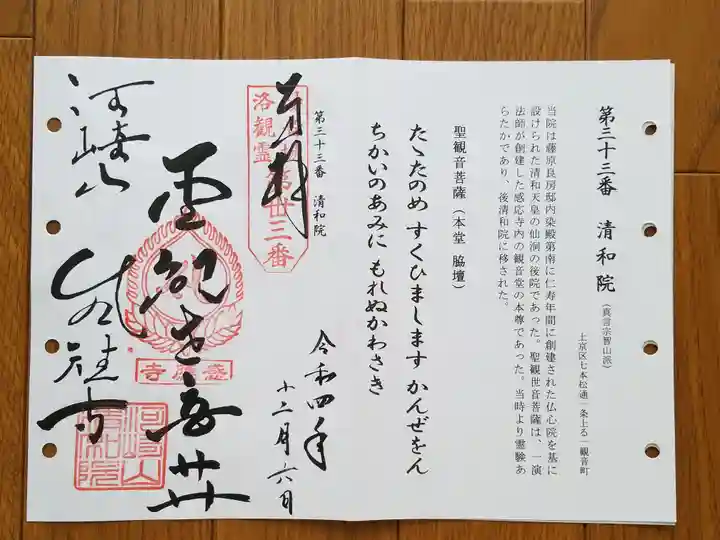 第三十三番 清和院(真言宗智山派)
上京区七本松通一条上る一観音町
当院は藤原良房邸内染殿第南に仁寿年間に創建された仏心院を基に
設けられた清和天皇の仙洞の後院であった。聖観世音菩薩は、一演
法師が創建した感応寺内の観音堂の本尊であった。当時より霊験あ
らたかであり、後清和院に移された。
聖観音菩薩(本堂 脇壇)
たゝたのめ すくひまします かんぜをん
ちかいのあみに もれぬかわさき
第三十三番 清和院
奉拝
洛観霊
第卅三番
令和四年
十二月六日
聖観世音
感應寺
河崎山
河崎山
清和院